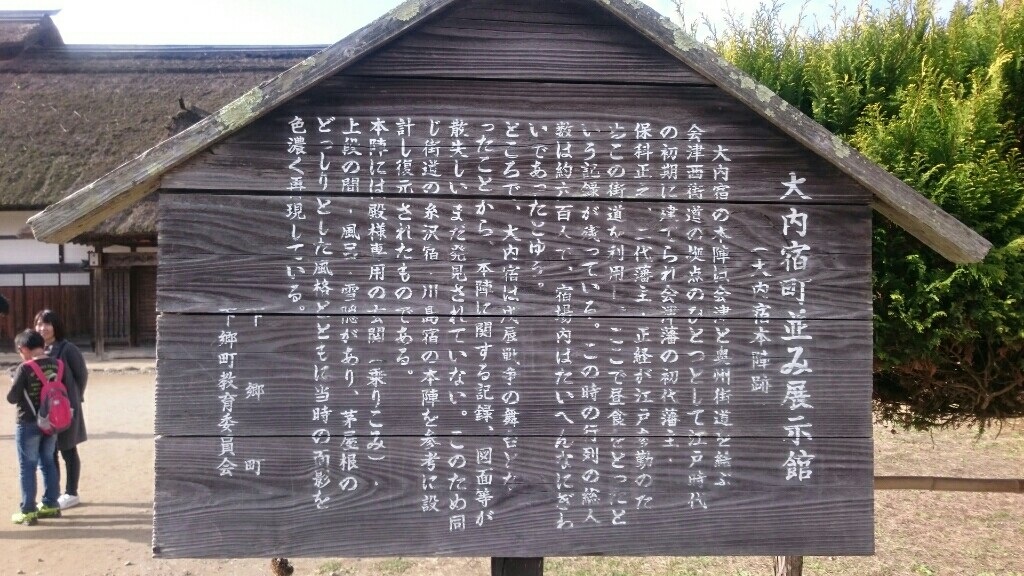 大内宿町並み展示館
(大内宿本陣跡)
大内宿の本陣は会津と奥州街道を結ぶ
会津西街道の拠点のひとつとして江戸時代
の初期に建てられ会津藩の初代藩主・
保科正之、二代藩主、正経が江戸参勤のた
めこの街道を利用し、ここで昼食をとったと
いう記録が残っている。この時の行列の総人
数は約六百人で、宿場内はたいへんなにぎわ
いであったとゆう。
ところで、大内宿は戊辰戦争の舞台とな
ったことから、本陣に関する記録、図面等が
散失しいまだ発見されていない。このため同
じ街道の糸沢宿・川島宿の本陣を参考に設
計し復元されたものである。
本陣には殿様専用の玄関(乗りこみ)、
上段の間、風呂、雪隠があり、茅屋根の
どっしりとした風格とともに当時の面影を
色濃く再現している。
下郷町
下郷町教育委員会